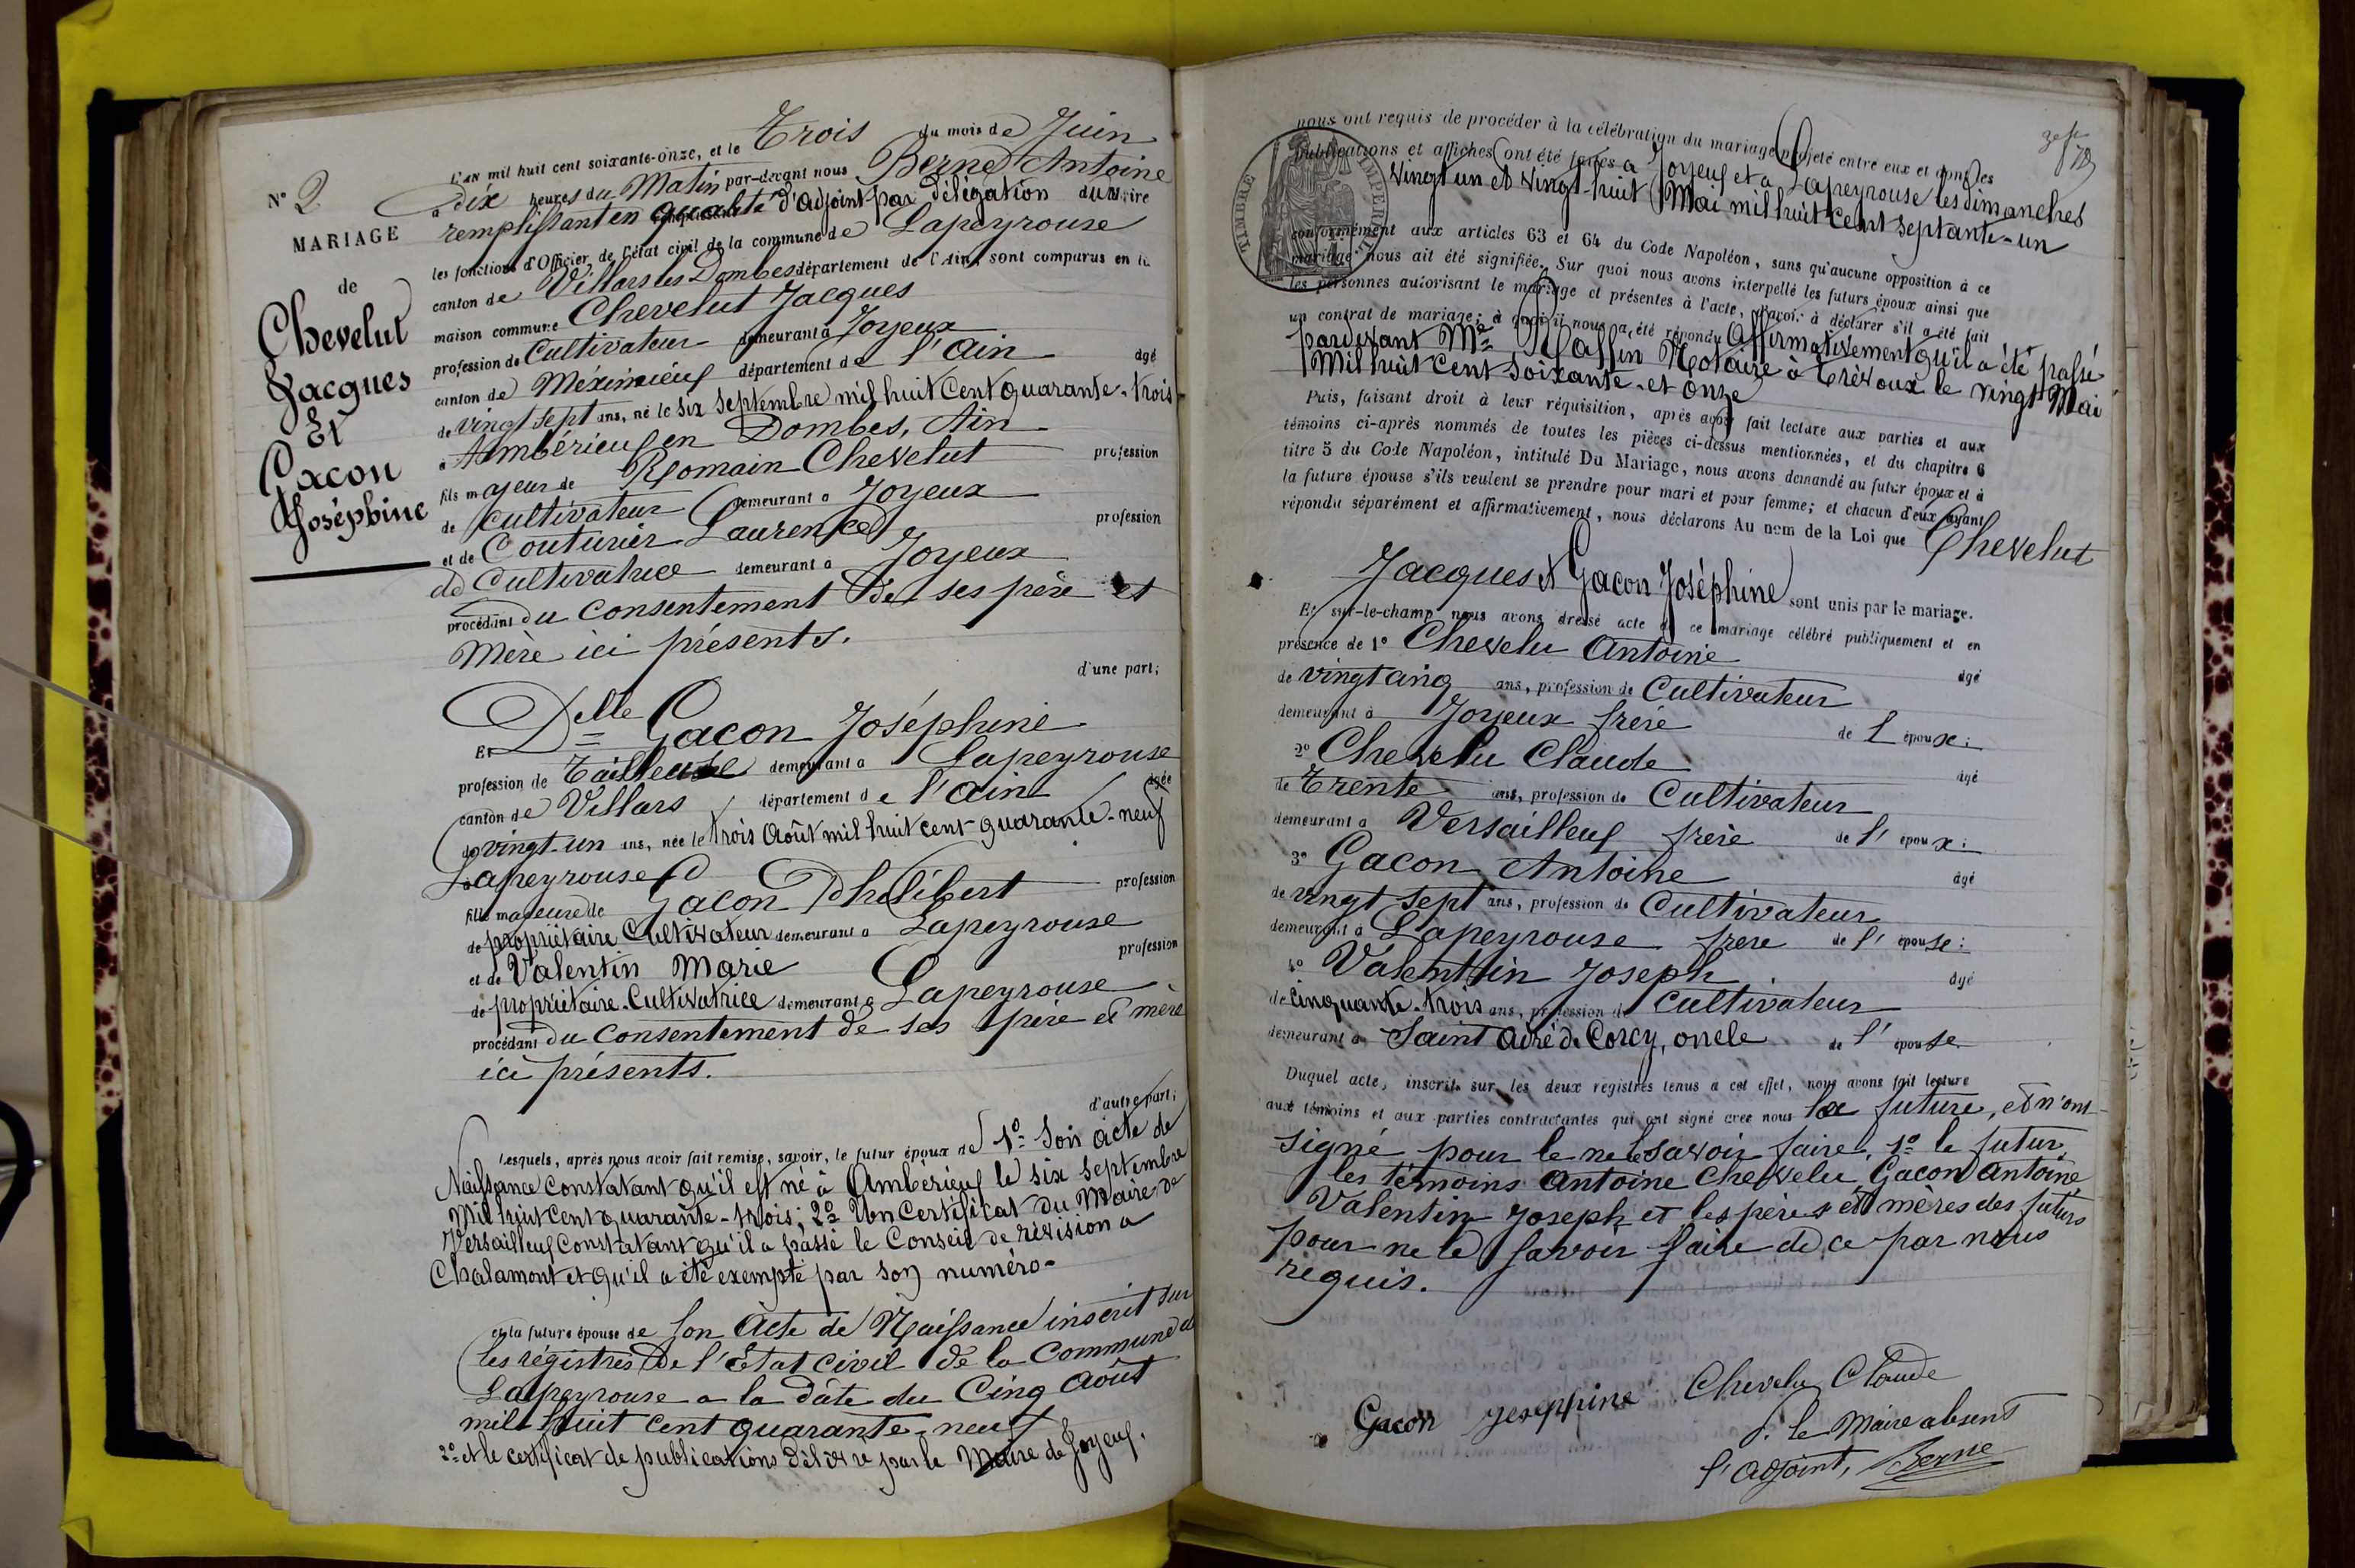 N° 2
MARIAGE
de
Chevelut
Jacques
Et
Gacon
Joséphine
L'AN mil huit cent soixante-onze, et le Trois du mois de Juin
à dix heures du Matin par-devant nous Berne Antoine
remplissant en qualité d'adjoint par délégation du Maire
les fonctions d'Officier de l'état civil de la commune de Lapeyrouse
canton de Villars les Dombes département de l'Ain, sont comparus en la
maison commune Chevelut Jacques
profession de Cultivateur demeurant à Joyeux
canton de Méximieux département de l'Ain âgé
de vingt sept ans, né le six septembre mil huit cent quarante-trois
à Ambérieux en Dombes, Ain
fils majeur de Romain Chevelut profession
de Cultivateur demeurant à Joyeux
et de Couturier Laurence profession
de Cultivatrice demeurant à Joyeux
procédant du consentement de ses père et
mère ici présents.
d'une part;
Et Delle Gacon Joséphine
profession de Tailleuse demeurant à Lapeyrouse
canton de Villars département de l'Ain âgée
de vingt-un ans, née le trois Août mil huit cent quarante-neuf
à Lapeyrouse
fille majeure de Gacon Philibert profession
de propriétaire Cultivateur demeurant à Lapeyrouse
et de Valentin Marie profession
de propriétaire-Cultivatrice demeurant à Lapeyrouse
procédant du consentement de ses père et mère
ici présents.
d'autre part;
Lesquels, après nous avoir fait remise, savoir, le futur époux de 1° Son acte de
Naissance constatant qu'il est né à Ambérieux le six septembre
Mil huit cent quarante-trois; 2° Un Certificat du Maire de
Versailleux constatant qu'il a passé le Conseil de révision à
Chalamont et qu'il a été exempté par son numéro-
et la future épouse de son Acte de Naissance inscrit sur
les régistres de l'Etat civil de la Commune de
Lapeyrouse à la date du Cinq Août
mil huit cent quarante-neuf
2° et le certificat de publications délivré par le Maire de Joyeux.
nous ont requis de procéder à la célébration du mariage projeté entre eux et dont les
publications et affiches ont été faites à Joyeux et à Lapeyrouse les dimanches
vingt un et vingt-huit Mai mil huit cent septante-un
conformément aux articles 63 et 64 du Code Napoléon, sans qu'aucune opposition à ce
mariage nous ait été signifiée. Sur quoi nous avons interpellé les futurs époux ainsi que
les personnes autorisant le mariage et présentes à l'acte, d'avoir à déclarer s'il a été fait
un contrat de mariage; à quoi il nous a été répondu Affirmativement qu'il a été passé
pardevant Me Raffin Notaire à Trévoux le vingt Mai
Mil huit cent soixante-et onze
Puis, faisant droit à leur réquisition, après avoir fait lecture aux parties et aux
témoins ci-après nommés de toutes les pièces ci-dessus mentionnées, et du chapitre 6
titre 5 du Code Napoléon, intitulé Du Mariage, nous avons demandé au futur époux et à
la future épouse s'ils veulent se prendre pour mari et pour femme; et chacun d'eux ayant
répondu séparément et affirmativement, nous déclarons Au nom de la Loi que Chevelut
Jacques et Gacon Joséphine sont unis par le mariage.
Et sur-le-champ nous avons dressé acte de ce mariage célébré publiquement et en
présence de 1° Chevelu Antoine âgé
de vingt cinq ans, profession de Cultivateur
demeurant à Joyeux frère de l'époux;
2° Chevelu Claude âgé
de Trente ans, profession de Cultivateur
demeurant à Versailleux frère de l'époux;
3° Gacon Antoine âgé
de vingt sept ans, profession de Cultivateur
demeurant à Lapeyrouse frère de l'épouse;
4° Valenttin Joseph âgé
de cinquante-trois ans, profession de Cultivateur
demeurant à Saint André de Corcy, oncle de l'épouse
Duquel acte, inscrit sur les deux registres tenus à cet effet, nous avons fait lecture
aux témoins et aux parties contractantes qui ont signé avec nous la future, et n'ont
signé pour le ne le savoir faire, 1° le futur,
les témoins Antoine Chevelu, Gacon Antoine,
Valentin Joseph et les pères et mères des futurs
pour ne le savoir faire de ce par nous
requis.
Gacon Joséphine Chevelu Claude
p. le Maire absent
l'adjoint, Berne
TIMBRE IMPERIAL